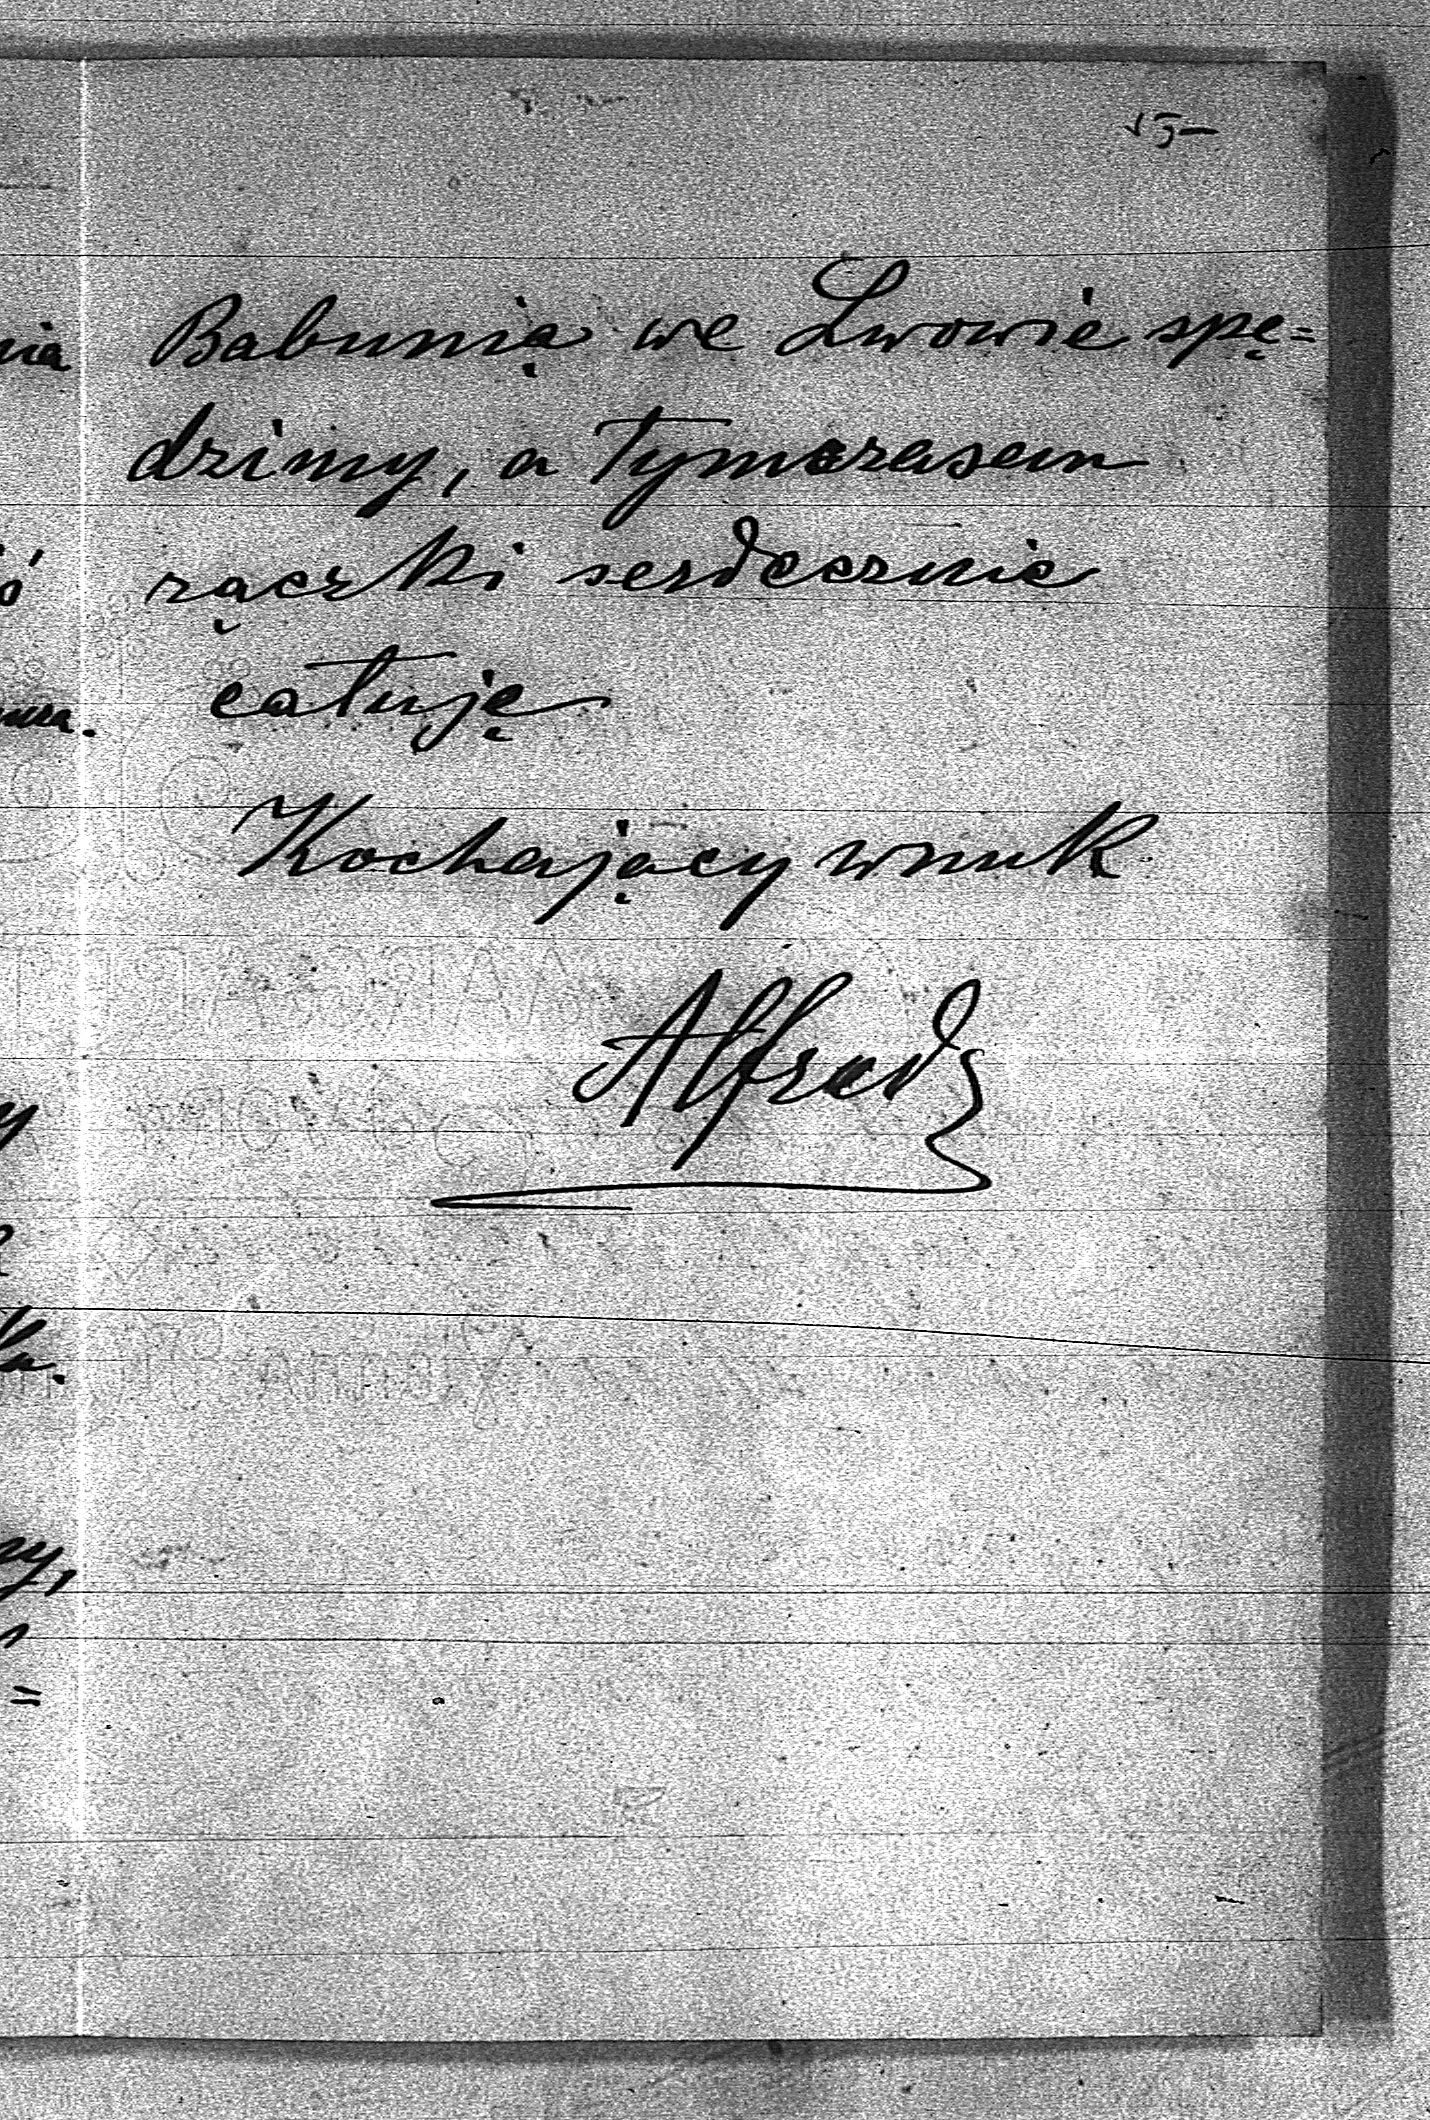 Babunią we Lwowie spę=
dzimy, a tymczasem
rączki serdecznie
całuję
Kochający wnuk
Alfred